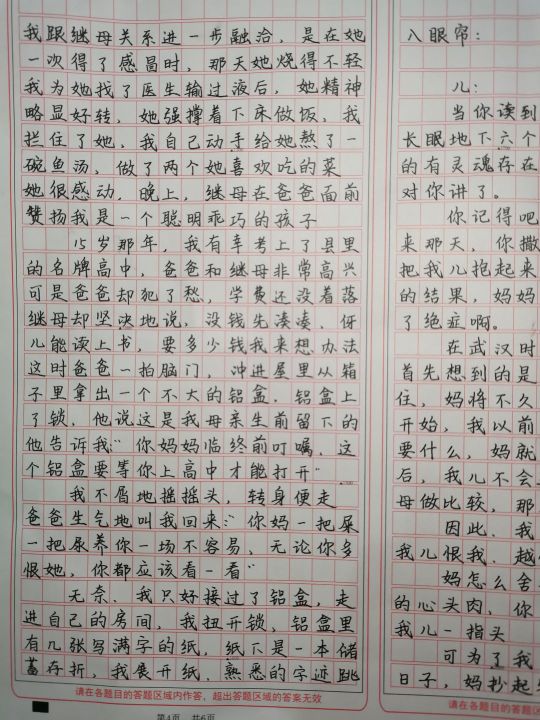 我跟继母关系进一步融洽，是在她
一次得了感昌时，那天她烧得不轻
我为她找了医生输过液后，她精神
略显好转，她强撑着下床做饭，我
拦住了她，我自己动手给她熬了一
碗鱼汤，做了两个她喜欢吃的菜
她很感动，晚上，继母在爸爸面前
赞扬我是一个聪明乖巧的孩子
15岁那年，我有幸考上了县里
的名牌高中，爸爸和继母非常高兴
可是爸爸却犯了愁，学费还没着落
继母却坚决地说，没钱先凑凑，伢
儿能读上书，要多少钱我来想办法
这时爸爸一拍脑门，冲进屋里从箱
子里拿出一个不大的铝盒，铝盒上
了锁，他说这是我母亲生前留下的
他告诉我：“你妈妈临终前叮嘱，这
个铝盒要等你上高中才能打开”
我不屑地摇摇头，转身便走
爸爸生气地叫我回来：“你妈一把屎
一把尿养你一场不容易，无论你多
恨她，你都应该看一看”
无奈，我只好接过了铝盒，走
进自己的房间，我扭开锁，铝盒里
有几张写满字的纸，纸下是一本储
蓄存折，我展开纸，熟悉的字迹跳
请在各题目的答题区域内作答，超出答题区域的答案无效
第4页 共6页
入眼帘：
儿：
当你读到
长眠地下六个
的有灵魂存在
对你讲了。
你记得吧
来那天，你撒
把我儿抱起来
的结果，妈妈
了绝症啊。
在武汉时
首先想到的是
住，妈将不久
开始，我以前
要什么，妈就
后，我儿不会
母做比较，那
因此，我
我儿恨我，越
妈怎么舍
的心头肉，你
我儿一指头
可为了我
日子，妈抄起
请在各题目的答题